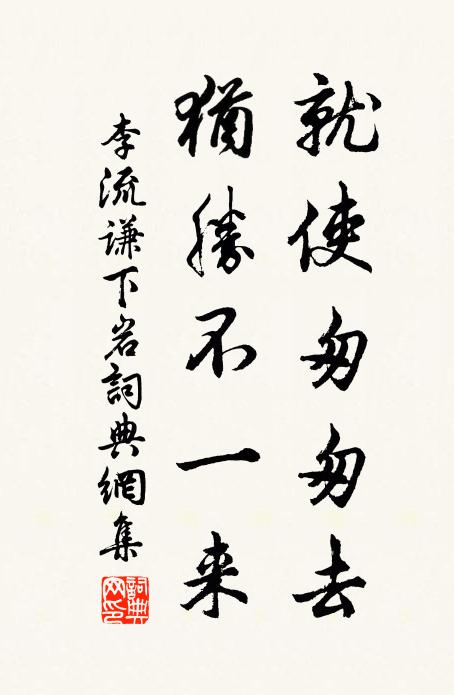 就使匆匆去
猶勝不一来
李流谦下岩詞典網集
詞典网印